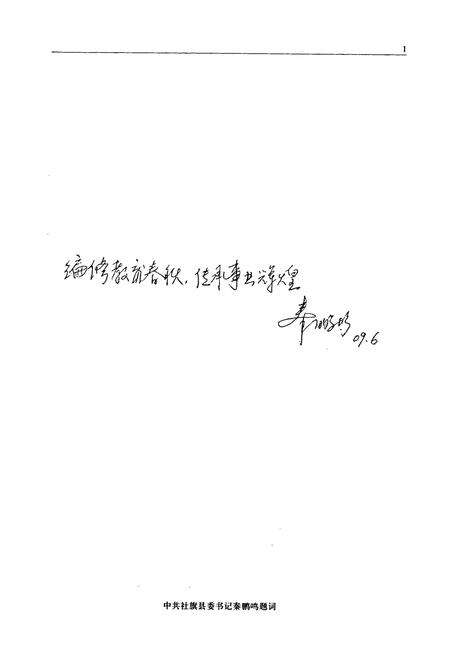 1
编修教育春秋，传承事业辉煌
秦鹏鸣
09.6
中共社旗县委书记秦鹏鸣题词